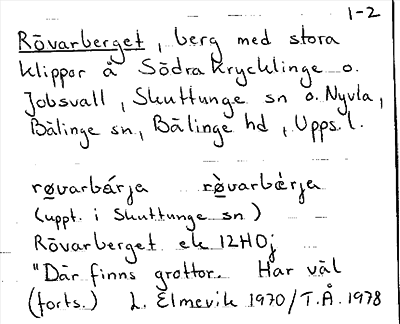 1-2
Rövarberget, berg med stora
klippor å Södra Krycklinge o.
Jobsvall, Skuttunge sn o. Nyvla,
Bälinge sn, Bälinge hd, Upps. l.
røvarbárja rø̀varbæ̀rja
(uppt. i Skuttunge sn)
Rövarberget ek 12H0j
"Där finns grottor. Har väl
(forts.) L. Elmevik 1970/T.Å. 1978